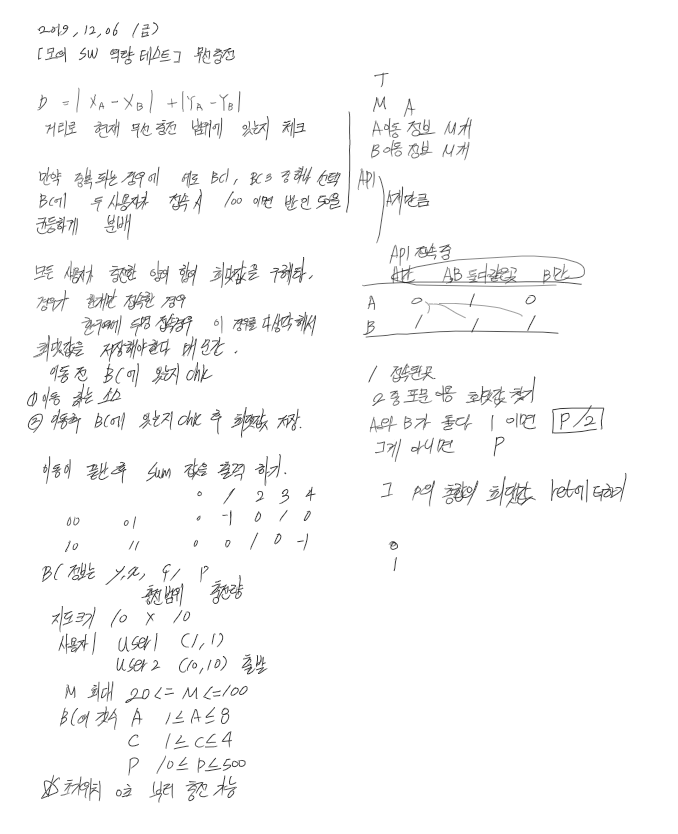 2019, 12, 06 (금)
[모의 SW 역량 테스트] 무선충전
D = | X_A - X_B | + | Y_A - Y_B |
거리로 현재 무선충전 범위에 있는지 체크
만약 중복되는 경우에 예로 BC1, BC3 중 하나 선택
BC에 두 사용자가 접속시 100 이면 반인 50을
균등하게 분배
모든 사용자가 충전한 양의 합의 최댓값을 구해라.
경우가 한개만 접속한 경우
한구역에 두명 접속경우 이 경우를 다 생각해서
최댓값을 저장해야한다 매 순간.
이동 전 BC에 있는지 chk
① 이동 하는 소스
② 이동후 BC에 있는지 chk 후 최댓값 저장.
이동이 끝난 후 sum 값을 출력 하기.
0 1 2 3 4
00 01 0 -1 0 1 0
10 11 0 0 1 0 -1
BC 정보는 y, x, C, P
충전범위 충전량
지도크기 10 x 10
사용자 user1 (1,1)
user2 (10,10) 출발
M 최대 20 <= M <= 100
BC의 갯수 A 1 ≤ A ≤ 8
C 1 ≤ C ≤ 4
P 10 ≤ P ≤ 500
초기위치 0초 부터 충전 가능
T
M A
A이동 정보 M개
B이동 정보 M개
AP1
A개만큼
AP1 접속중
A만 AB 둘다같은곳 B만
A 0 1 0
B 1 1 1
1 접속된곳
2중 포문 이용 최댓값 찾기
A와 B가 둘다 1 이면 P/2
그게 아니면 P
그 P의 총합의 최댓값 ret에 더하기
0
1